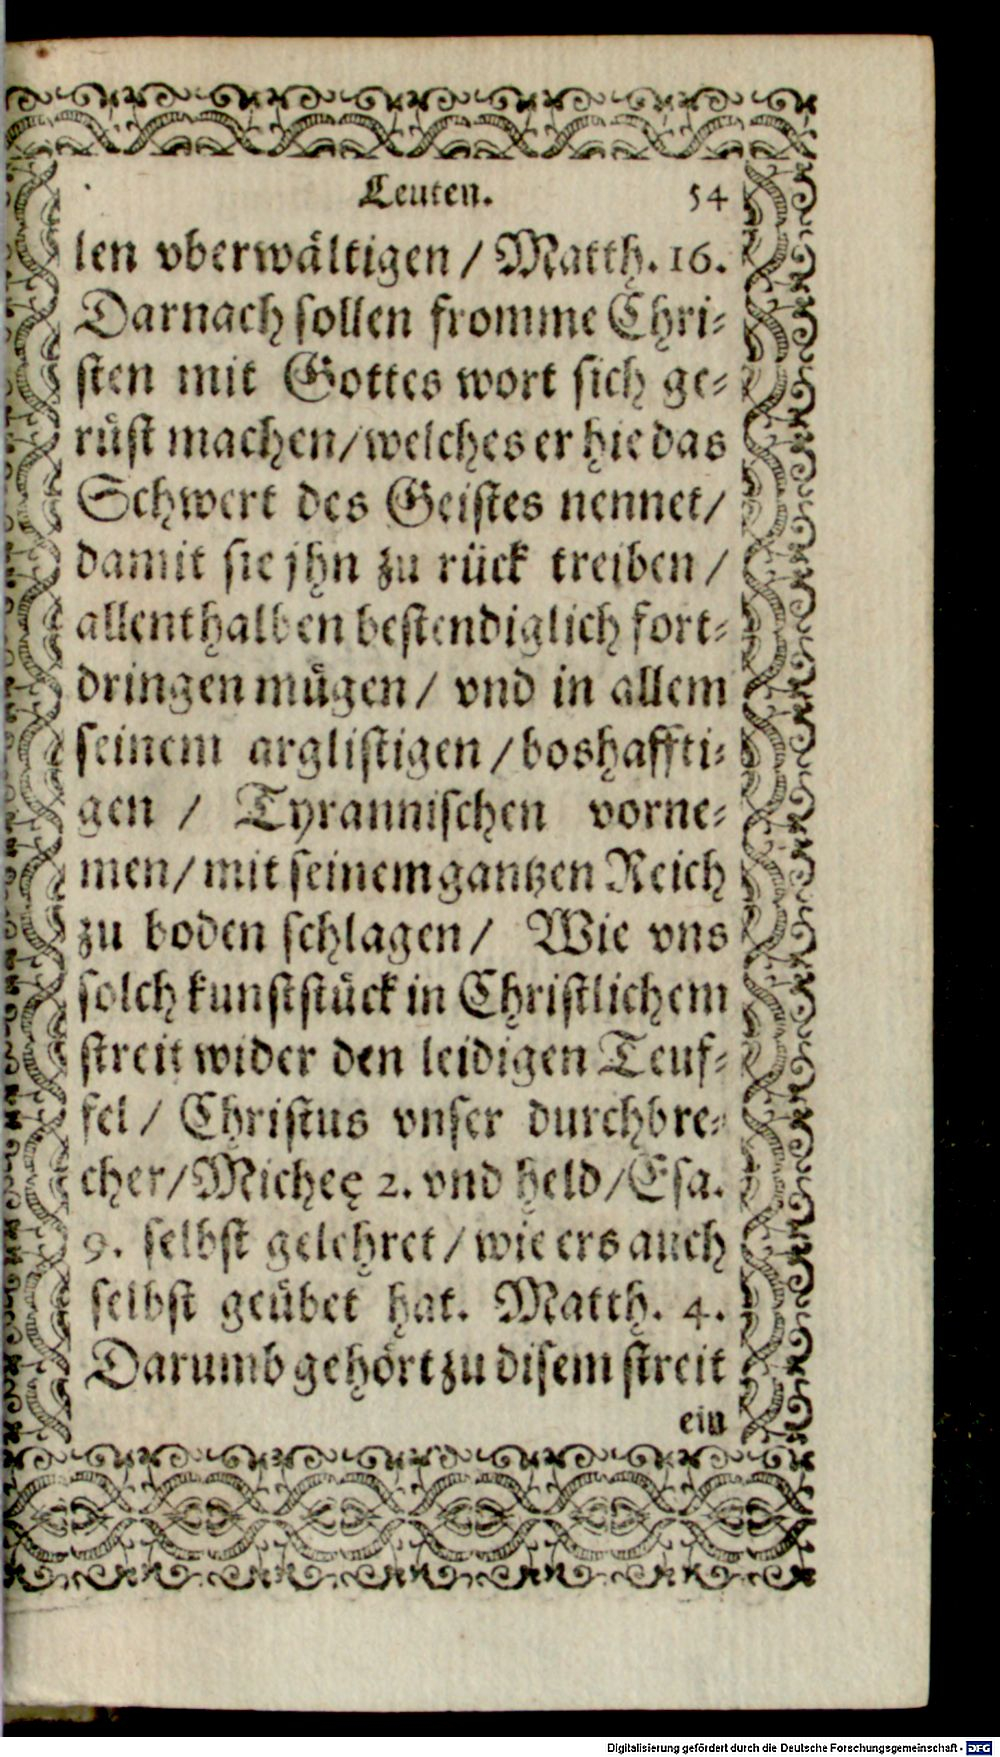 Leuten. 54
len vberwältigen / Matth. 16.
Darnach sollen fromme Chri⸗
sten mit Gottes wort sich ge⸗
rüst machen / welches er hie das
Schwert des Geistes nennet /
damit sie jhn zu rück treiben /
allenthalben bestendiglich fort⸗
dringen mügen / vnd in allem
seinem arglistigen / boshaffti⸗
gen / Tyrannischen vorne⸗
men / mit seinem gantzen Reich
zu boden schlagen / Wie vns
solch kunststück in Christlichem
streit wider den leidigen Teuf⸗
fel / Christus vnser durchbre⸗
cher / Micheę 2. vnd held / Esa.
9. selbst gelehret / wie ers auch
selbst geübet hat. Matth. 4.
Darumb gehört zu disem streit
ein
Digitalisierung gefördert durch die Deutsche Forschungsgemeinschaft - DFG